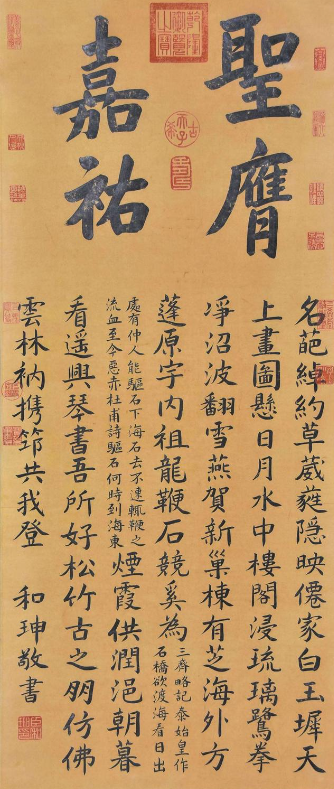 聖膺
嘉祐
乾隆御覽之寶
古稀天子
名葩綽約草葳蕤隱映僊家白玉墀天
上畫圖懸日月水中樓閣浸琉璃鷺拳
淨沼波翻雪燕賀新巢棟有芝海外方
蓬原字内祖龍鞭石競奚為
三齊略記秦始皇作
石橋欲渡海看日出
處有神人能驅石下海石去不速輒鞭之
流血至今悉赤杜甫詩驅石何時到海東
煙霞供潤浥朝暮
看遥興琴書吾所好松竹古之朋仿佛
雲林衲携筇共我登
和珅敬書